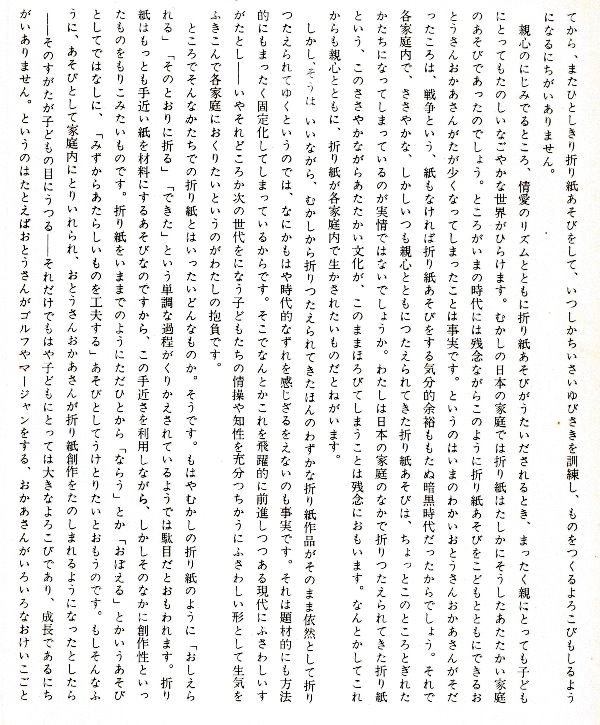 てから、またひとしきり折り紙あそびをして、いつしかちいさいゆびさきを訓練し、ものをつくるよろこびもしるよう
になるにちがいありません。
親心のにじみでるところ、情愛のリズムとともに折り紙あそびがうたいだされるとき、まったく親にとっても子ども
にとってもたのしいなごやかな世界がひらけます。むかしの日本の家庭では折り紙はたしかにそうしたあたたかい家庭
のあそびであったのでしょう。ところがいまの時代には残念ながらこのように折り紙あそびをこどもとともにできるお
とうさんおかあさんがたが少くなってしまったことは事実です。というのはいまのわかいおとうさんおかあさんがそだ
ったころは、戦争という、紙もなければ折り紙あそびをする気分的余裕ももたぬ暗黒時代だったからでしょう。それで
各家庭内で、ささやかな、しかしいつも親心とともにつたえられてきた折り紙あそびは、ちょっとこのところとぎれた
かたちになってしまっているのが実情ではないでしょうか。わたしは日本の家庭のなかで折りつたえられてきた折り紙
という、このささやかながらあたたかい文化が、このままほろびてしまうことは残念におもいます。なんとかしてこれ
からも親心とともに、折り紙が各家庭内で生かされたいものだとねがいます。
しかし、そうは いいながら、むかしから折りつたえられてきたほんのわずかな折り紙作品がそのまま依然として折り
つたえられてゆくというのでは、なにかもはや時代的なずれを感じざるをえないのも事実です。それは題材的にも方法
的にもまったく固定化してしまっているからです。そこでなんとかこれを飛躍的に前進しつつある現代にふさわしいす
がたとし――いやそれどころか次の世代をになう子どもたちの情操や知性を充分つちかうにふさわしい形として生気を
ふきこんで各家庭におくりたいというのがわたしの抱負です。
ところでそんなかたちでの折り紙とはいったいどんなものか。そうです。もはやむかしの折り紙のように「おしえら
れる」「そのとおりに折る」「できた」という単調な過程がくりかえされているようでは駄目だとおもわれます。折り
紙はもっとも手近い紙を材料にするあそびなのですから、この手近さを利用しながら、しかしそのなかに創作性といっ
たものをもりこみたいものです。折り紙をいままでのようにただひとから「ならう」とか「おぼえる」とかいうあそび
としてではなしに、「みずからあたらしいものを工夫する」あそびとしてうけとりたいとおもうのです。もしそんなふ
うに、あそびとして家庭内にとりいれられ、おとうさんおかあさんが折り紙創作をたのしまれるようになったとしたら
――そのすがたが子どもの目にうつる――それだけでもはや子どもにとっては大きなよろこびであり、成長であるにち
がいありません。というのはたとえばおとうさんがゴルフやマージャンをする、おかあさんがいろいろなおけいこごと